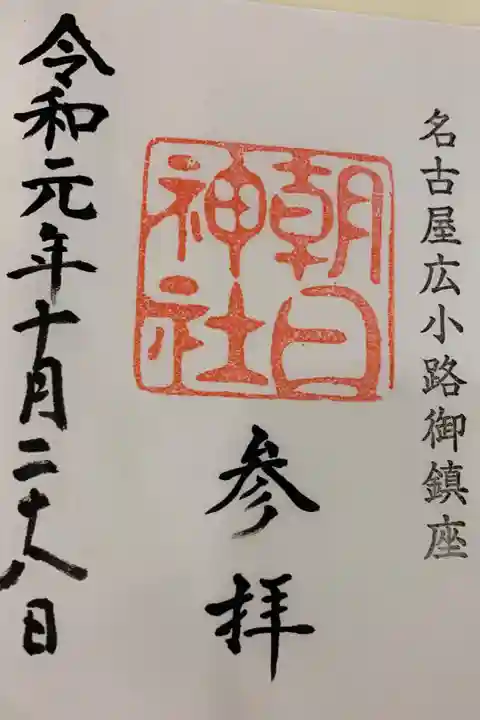 名古屋広小路御鎮座
朝日
神社
参拝
令和元年十月二十八日